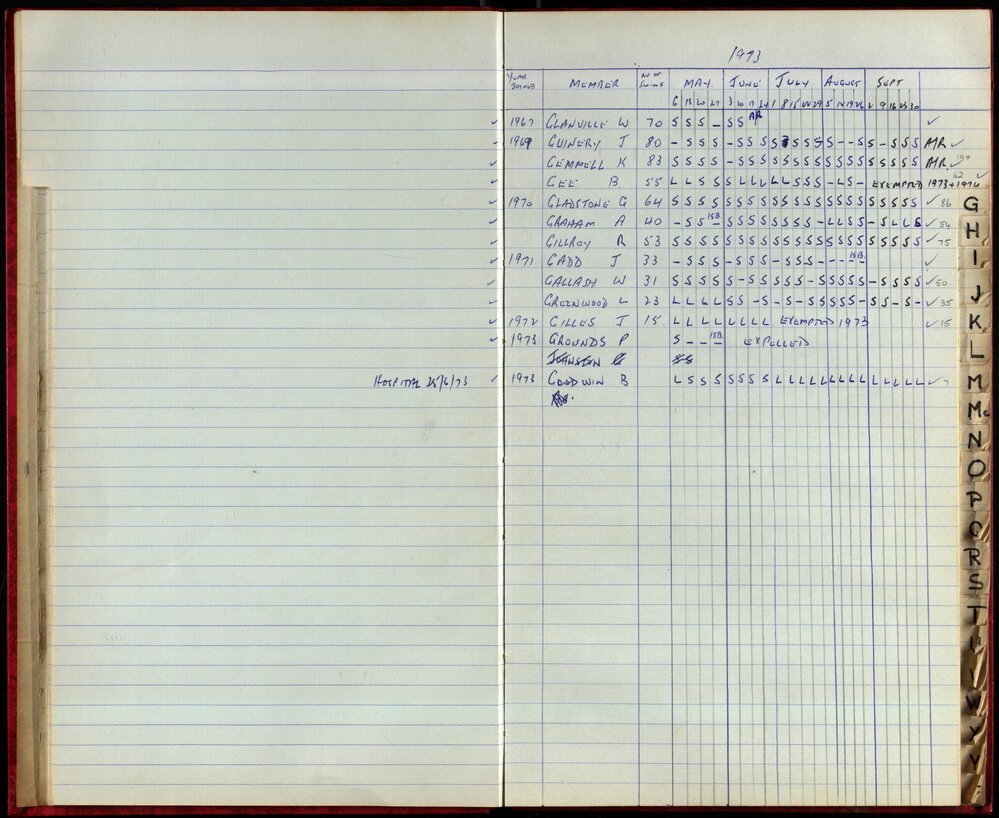 1973
YEAR JOINED MEMBER NO OF SWIMS MAY JUNE JULY AUGUST SEPT
6 13 20 27 3 10 17 24 1 8 15 22 29 5 12 19 26 2 9 16 23 30
✓ 1967 GLANVILLE W 70 S S S – S S AR ✓
✓ 1969 GUINERY J 80 – S S S – S S S S S S S S S – – S S – S S S MR ✓
✓ GEMMELL K 83 S S S S – S S S S S S S S S S S S S S S S S MR ✓ 104
✓ GEE B 55 L L S S S L L L L L S S S – L S – EXEMPTED 1973 + 1974 62 ✓
✓ 1970 GLADSTONE G 64 S S S S S S S S S S S S S S S S S S S S S S ✓ 86
✓ GRAHAM A 40 – S S 15B S S S S S S S S – L L S S – S L L S ✓ 54
✓ GILLROY R 53 S S S S S S S S S S S S S S S S S S S S S S ✓ 75
✓ 1971 GADD J 33 – S S S – S S S – S S S – – – – 15B. ✓
✓ GALLASH W 31 S S S S S – S S S S S – S S S S S – S S S S ✓ 50
✓ GREENWOOD L 23 L L L L S S – S – S – S S S S S – S S – S – ✓ 35
✓ 1972 GILLES J 15 L L L L L L L L EXEMPTED 1973 ✓ 15
✓ 1973 GROUNDS P S – – 15B. EXPELLED
JOHNSTON G S S
HOSPITAL 25/6/73 ✓ 1973 GOODWIN B L S S S S S S S L L L L L L L L L L L L L L ✓ 7
G
H
I
J
K
L
M
Mc
N
O
P
Q
R
S
T
W
Y